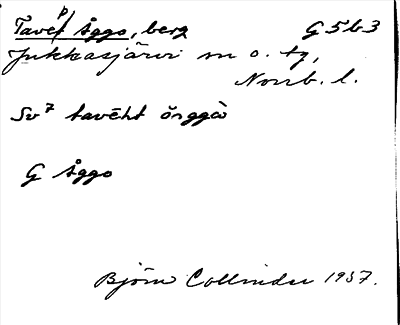 Tavep Åggo, berg G 5 b 3
Jukkasjärvi sn o. tg,
Norrb. l.
Sv7 tavēht ŏrggò
G Åggo
Björn Collinder 1937.